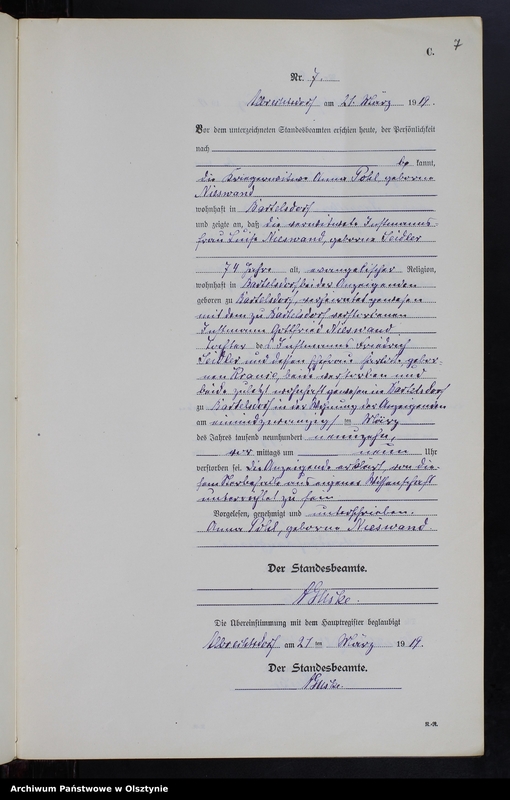 7
C.
Nr. 7.
Albrechtsdorf am 21. März 1919.
Vor dem unterzeichneten Standesbeamten erschien heute, der Persönlichkeit
nach
be kannt,
die Kriegerwitwe Anna Pohl, geborne
Nieswand
wohnhaft in Bartelsdorf
und zeigte an, daß die verwitwete Instmanns-
frau Luise Nieswand, geborne Seidler
74 Jahre alt, evangelischer Religion,
wohnhaft in Bartelsdorf bei der Anzeigenden
geboren zu Bartelsdorf, verheiratet gewesen
mit dem zu Bartelsdorf verstorbenen
Instmann Gottfried Nieswand.
Tochter des Instmanns Friedrich
Seidler und dessen Ehefrau gebor-
nen Krause, beide verstorben und
beide zuletzt wohnhaft gewesen in Bartelsdorf
zu Bartelsdorf in der Wohnung der Anzeigenden
am einundzwanzigsten März
des Jahres tausend neunhundert neunzehn,
vor mittags um neun Uhr
verstorben sei. Die Anzeigende erklärt, von die-
sem Sterbefalle aus eigener Wissenschaft
unterrichtet zu sein
Vorgelesen, genehmigt und unterschrieben.
Anna Pohl, geborne Nieswand.
Der Standesbeamte.
Die Übereinstimmung mit dem Hauptregister beglaubigt
Albrechtsdorf am 21 ten März 1919.
Der Standesbeamte.
R.-R.
Archiwum Państwowe w Olsztynie